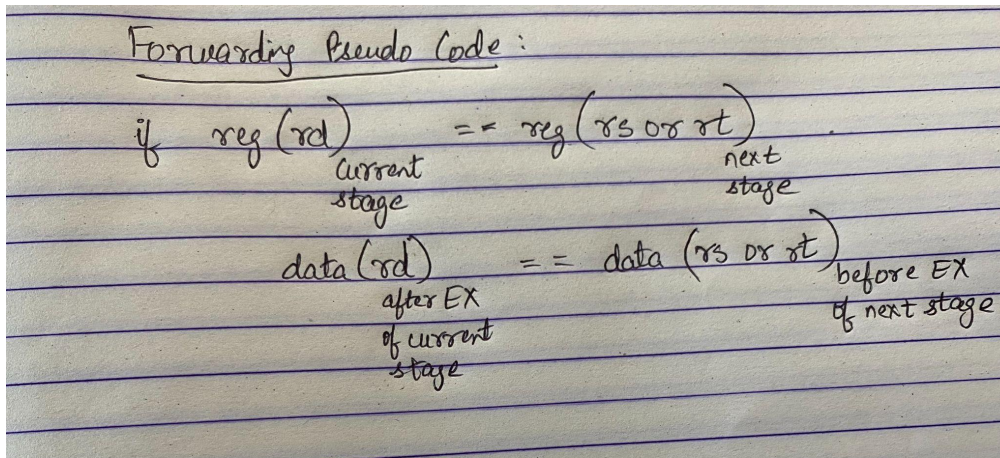 Forwarding Pseudo Code :
if reg (rd) current stage == reg (rs or rt) next stage
data (rd) after EX of current stage == data (rs or rt) before EX of next stage